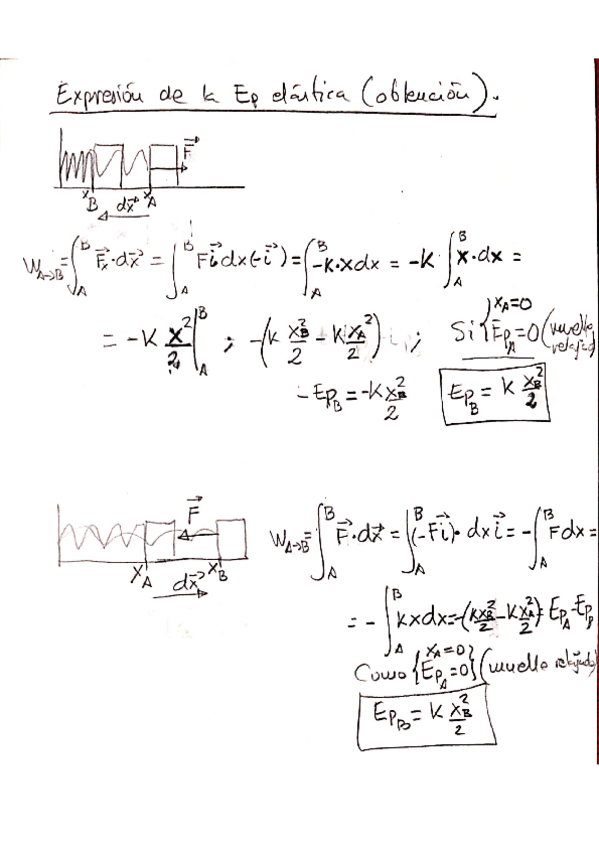 Expresión de la Ep elástica (obtención).
F⃗
x_B dx⃗ x_A
W_{A→B} = ∫_A^B F⃗x · dx⃗ = ∫_A^B F i⃗ dx(-i⃗) = ∫_A^B -k·x dx = -k ∫_A^B x·dx =
= -k x²/2 |_A^B ; -(k x_B²/2 - k x_A²/2) ; Si { x_A=0 Ep_A=0 (muelle relajado)
-Ep_B = -k x_B²/2
Ep_B = k x_B²/2
F⃗
x_A dx⃗ x_B
W_{A→B} = ∫_A^B F⃗·dx⃗ = ∫_A^B (-F i⃗)· dx i⃗ = -∫_A^B F dx =
= - ∫_A^B kx dx = -(k x_B²/2 - k x_A²/2) = Ep_A - Ep_B
Como { x_A=0 Ep_A=0 } (muelle relajado)
Ep_B = k x_B²/2